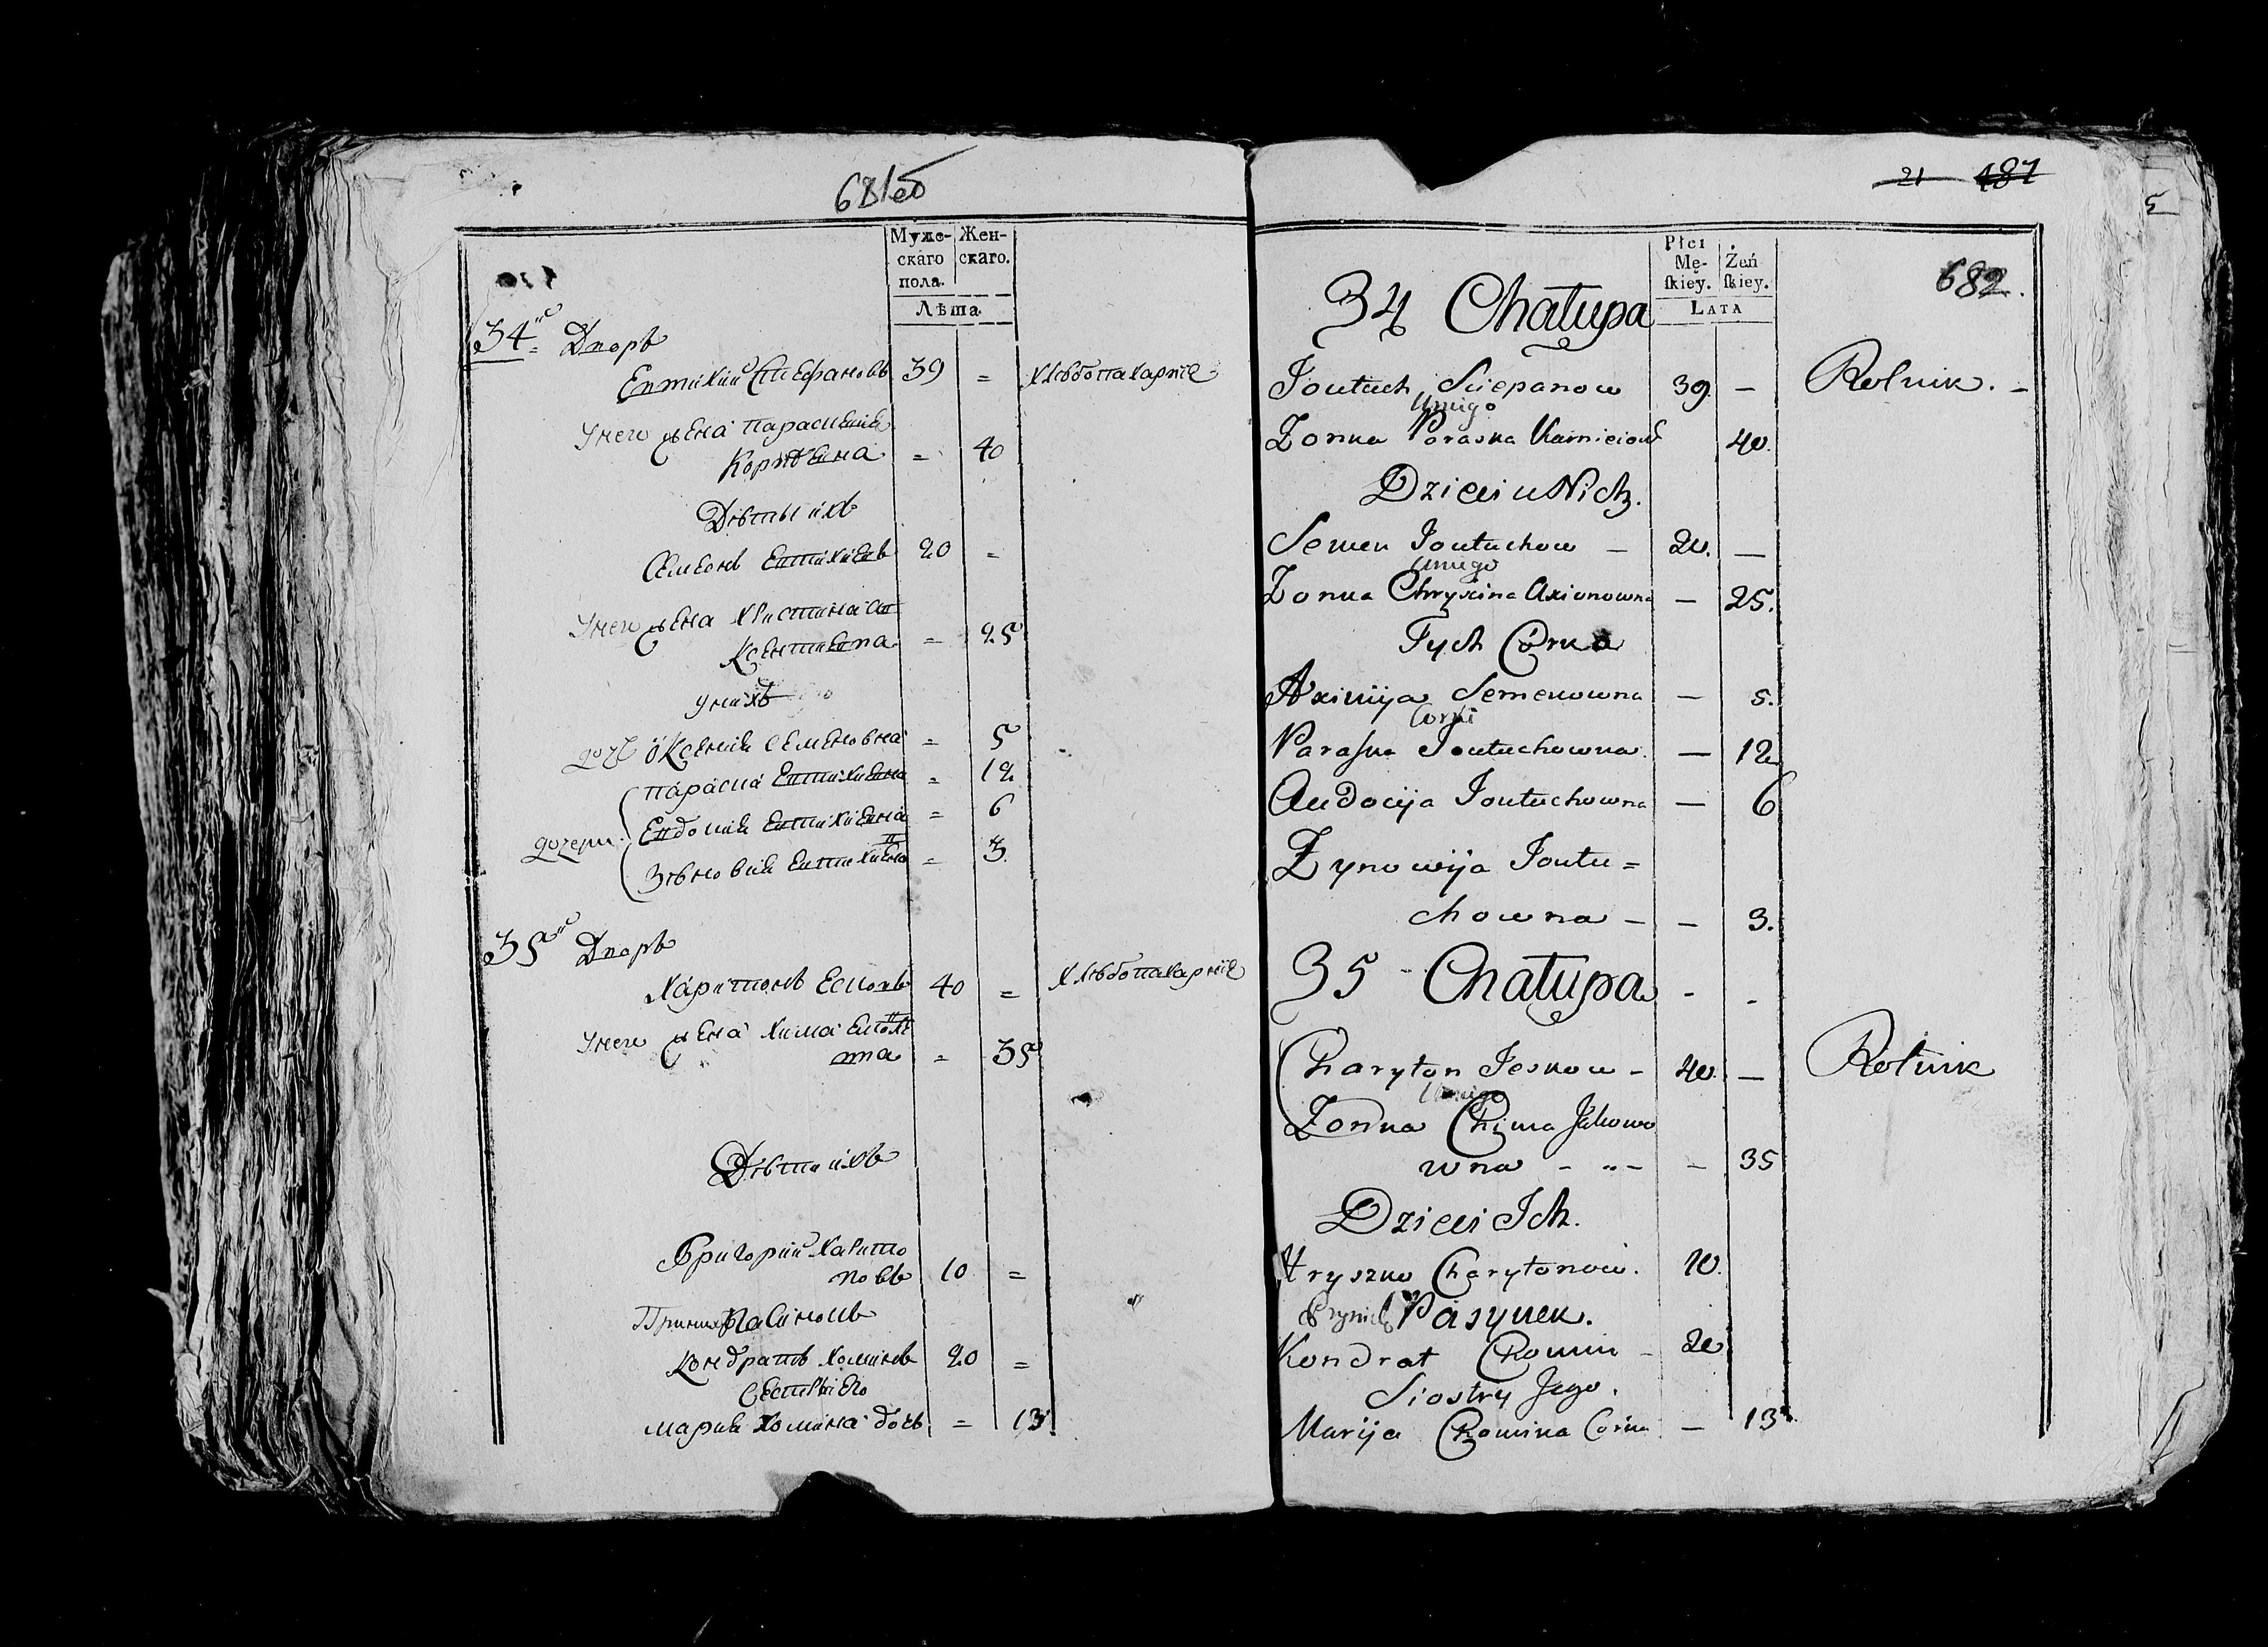 681об
Мужескаго пола.
Женскаго.
Лѣта
34й Дворъ
Евтихий Стефановъ 39 = хлѣбопахарніе
У него жена Параския
= 40
Дѣты ихъ
Семенъ Евтихиевъ 20 =
У него жена Христина
= 25
у нихъ
дочь Оксения Семеновна = 5
дочери Параска Евтихиевна = 12
Евдокия Евтихиевна = 6
Зѣновия Евтихиевна = 3
35й Дворъ
Харитонъ Еско̅въ 40 = хлѣбопахарніе
У него жена Хима
= 35
Дѣти ихъ
Григорий Харито
новъ 10 =
Пасинокъ
Кондратъ Хоминъ 20 =
Сестра его
Мария Хомина дочь = 13
21 487
682.
Płci Męskiey.
Żeńskiey.
Lata
34 Chałupa
Jowtuch Sciepanow 39. – Rolnik. –
U niego
Zonka Paraska 40.
Dzieci u Nich.
Semen Jowtuchow – 20. –
U niego
Zonka Chryscina Axionowna – 25.
Tych Córka
Axinija Semenowna – 5.
Corki
Paraska Jowtuchowna. – 12
Audocija Jowtuchowna – 6
Zynowija Jowtu=
chowna – – 3.
35 Chałupa - -
Charyton Jeskow – 40. – Rolnik
U niego
Zonka Chima Jakowo
wna – – – 35
Dzieci Ich.
Hryszko Charytonow. 10.
Pasynek.
Kondrat Chomin – 20
Siostry Jego.
Marija Chomina Córka – 13
5